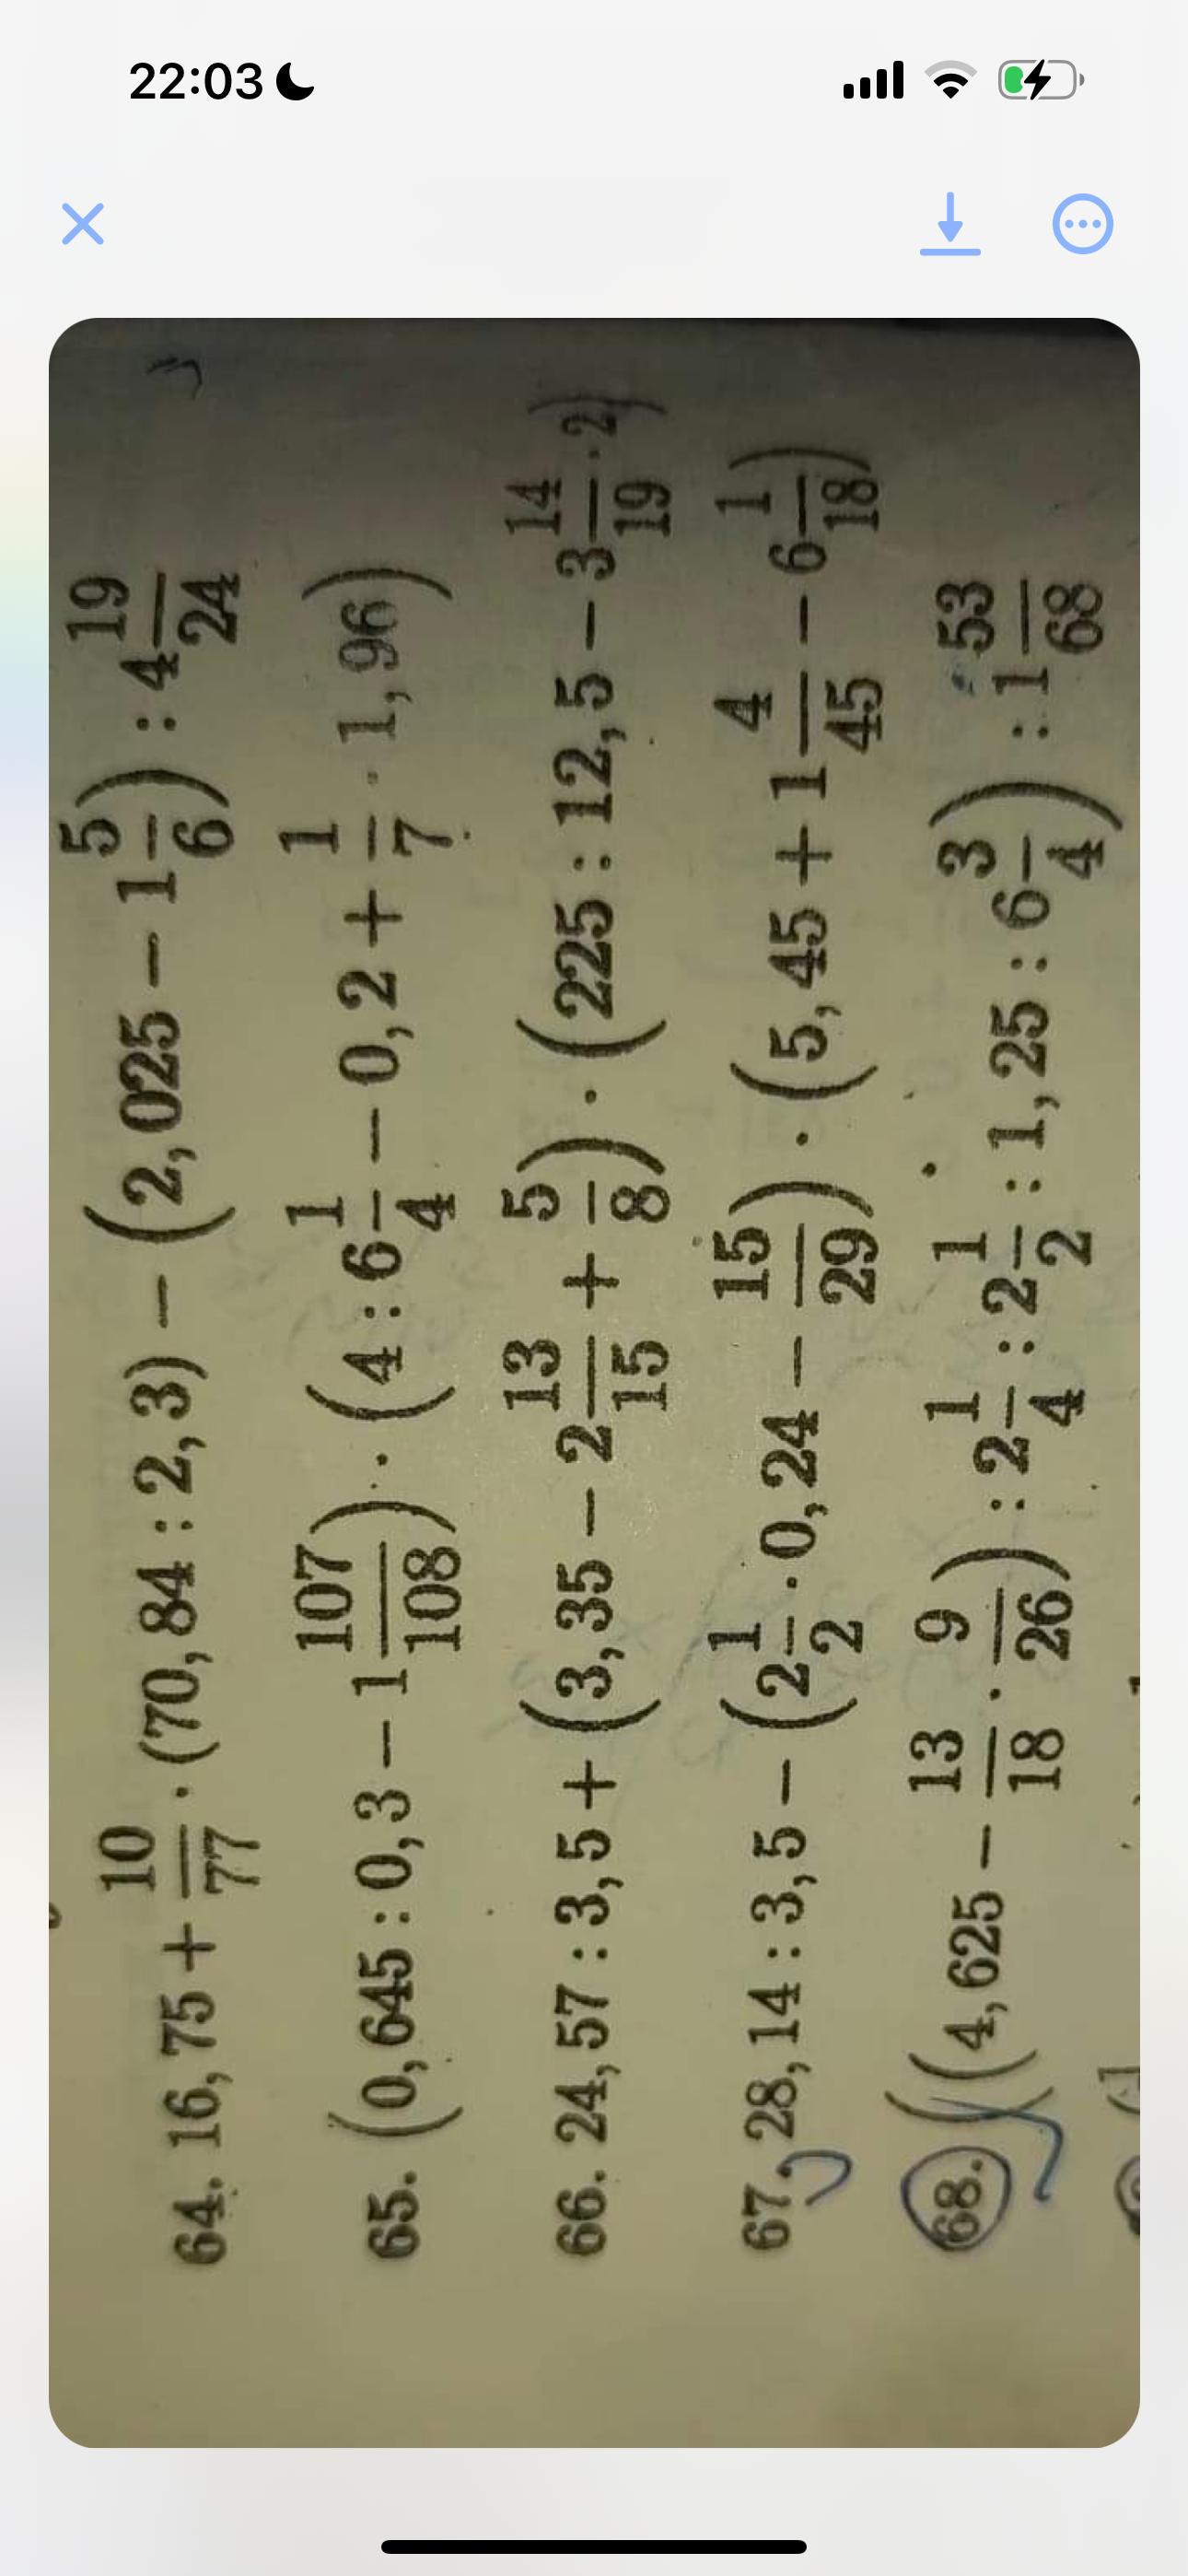 22:03
64. 16,75 + 10/77 · (70,84 : 2,3) − (2,025 − 1 5/6) : 4 19/24
65. (0,645 : 0,3 − 1 107/108) · (4 : 6 1/4 − 0,2 + 1/7 · 1,96)
66. 24,57 : 3,5 + (3,35 − 2 13/15 + 5/8) · (225 : 12,5 − 3 14/19 · 2)
67. 28,14 : 3,5 − (2 1/2 · 0,24 − 15/29) · (5,45 + 1 4/45 − 6 1/18)
68. ((4,625 − 13/18 · 9/26) : 2 1/4 : 2 1/2 : 1,25 : 6 3/4) : 1 53/68